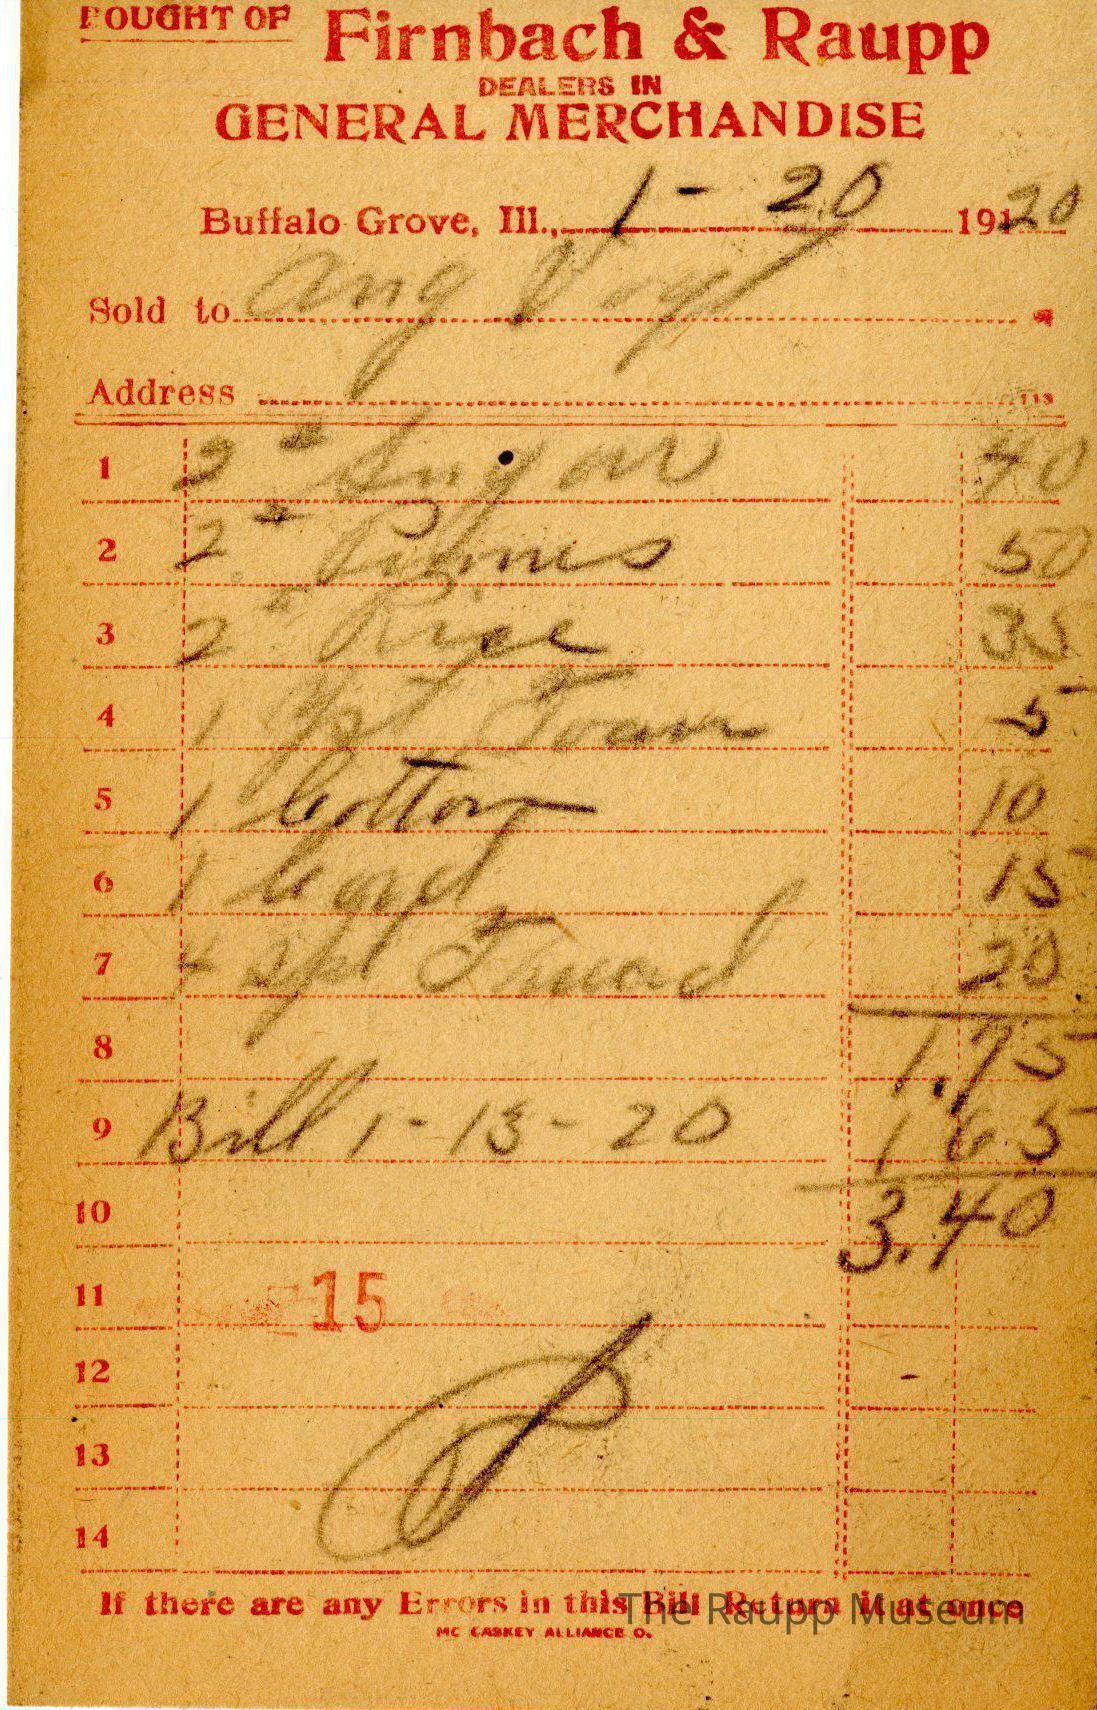 BOUGHT OF Firnbach & Raupp
DEALERS IN
GENERAL MERCHANDISE
Buffalo Grove, Ill., 1 - 20 1920
Sold to Aug Vogt
Address
1 2 # Sugar 40
2 2 # Prunes 50
3 2 " Rice 35
4 1 Foam 5
5 1 Cotton 10
6 1 Card 15
7 4 Spl Thread 20
8 1.75
9 Bill 1-13-20 1 65
10 3.40
11 15
12 -
13
14
If there are any Errors in this Bill Return it at once
MC CASKEY ALLIANCE O.
The Raupp Museum